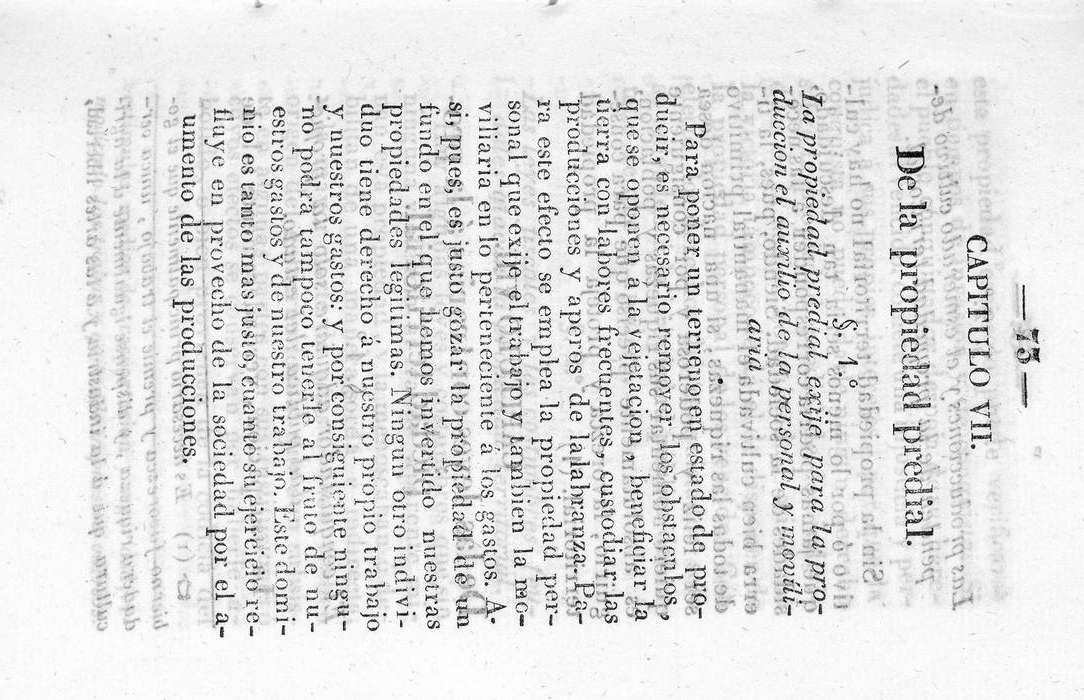 — 75 —
CAPITULO VII.
De la propiedad predial.
§. 1.º
La propiedad predial, exije para la pro-
duccion el auxilio de la personal y movili-
aria
Para poner un terreno en estado de pro-
ducir, es necesario remover los obstaculos,
que se oponen á la vejetacion, beneficiar la
tierra con labores frecuentes, custodiar las
producciones y aperos de la labranza. Pa-
ra este efecto se emplea la propiedad per-
sonal que exije el trabajo y tambien la mo-
viliaria en lo perteneciente á los gastos. A-
si, pues, es justo gozar la propiedad de un
fundo en el que hemos invertido nuestras
propiedades legitimas. Ningun otro indivi-
duo tiene derecho á nuestro propio trabajo
y nuestros gastos: y por consiguiente ningu-
no podra tampoco tenerle al fruto de nu-
estros gastos y de nuestro trabajo. Este domi-
nio es tanto mas justo, cuanto su ejercicio re-
fluye en provecho de la sociedad por el a-
umento de las producciones.